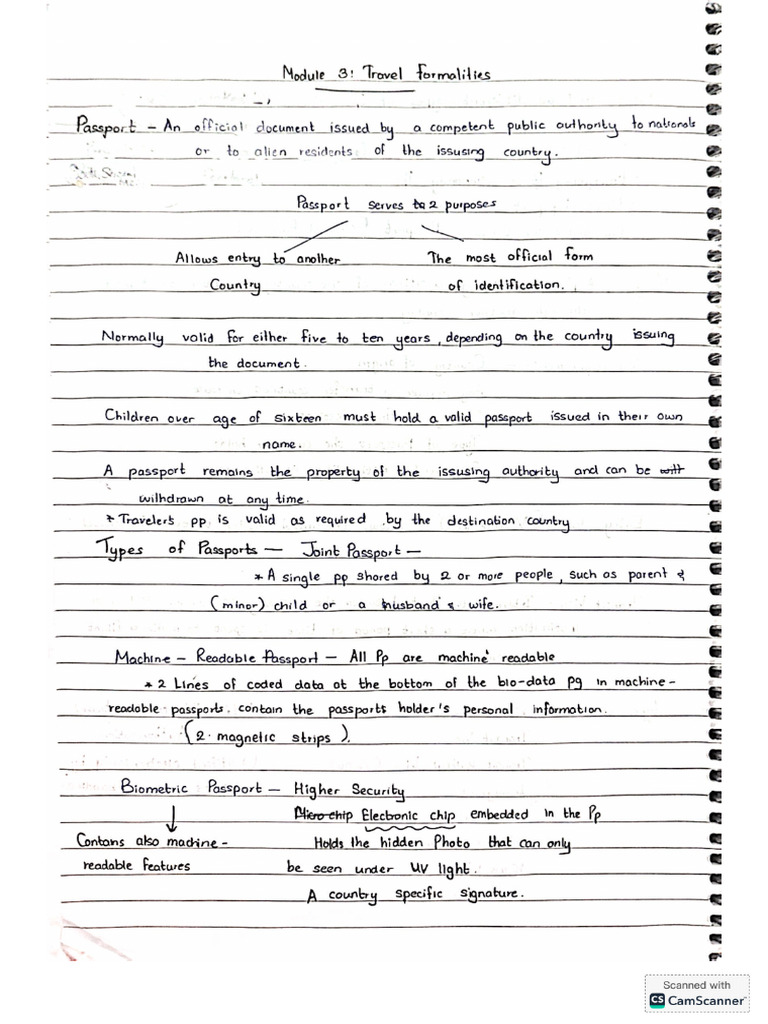 Module 3: Travel Formalities
Passport – An official document issued by a competent public authority to nationals
or to alien residents of the issusing country.
Passport serves to 2 purposes
Allows entry to another
Country
The most official form
of identification.
Normally valid for either five to ten years, depending on the country issuing
the document.
Children over age of sixteen must hold a valid passport issued in their own
name.
A passport remains the property of the issusing authority and can be with
withdrawn at any time.
* Travelers pp is valid as required by the destination country
Types of Passports – Joint Passport –
* A single pp shared by 2 or more people, such as parent &
(minor) child or a husband & wife.
Machine – Readable Passport – All Pp are machine readable
* 2 Lines of coded data at the bottom of the bio-data pg in machine –
readable passports. contain the passports holder's personal information.
(2 magnetic strips).
Biometric Passport – Higher Security
Micro chip Electronic chip embedded in the Pp
Contans also machine –
readable features
Holds the hidden Photo that can only
be seen under UV light.
A country specific signature.
Scanned with
CS CamScanner